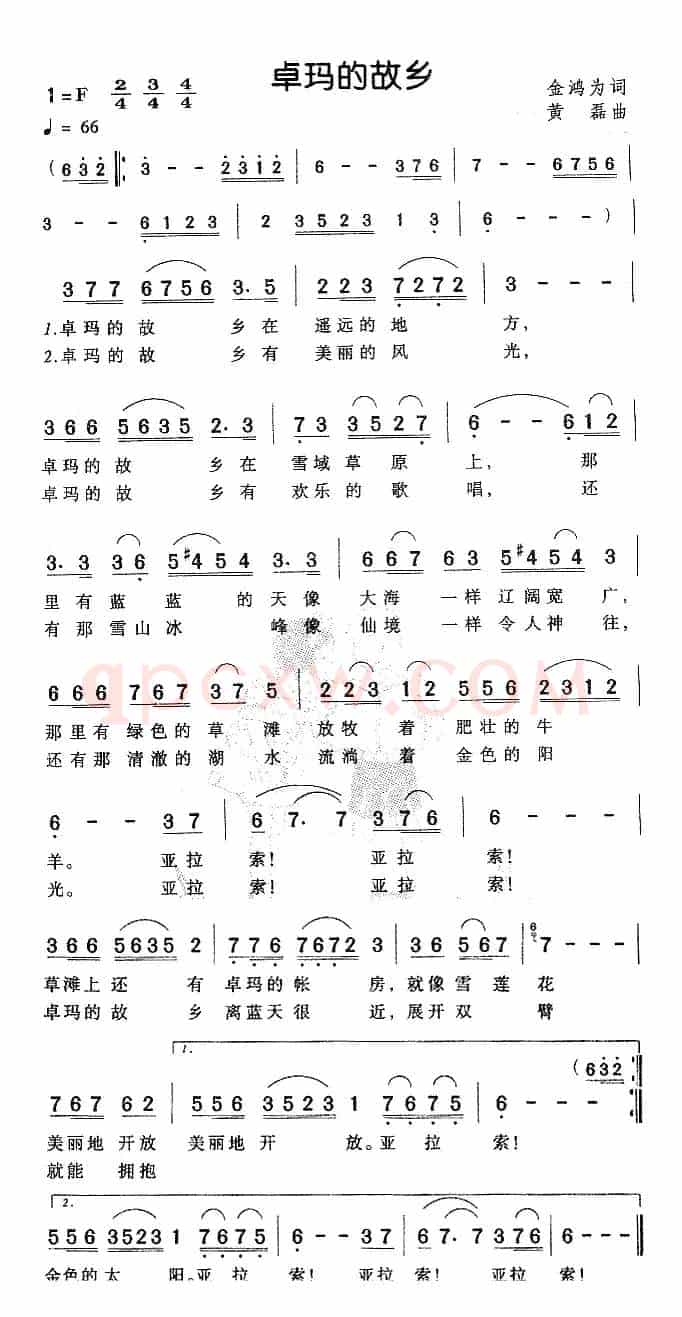 卓玛的故乡
1=F 2/4 3/4 4/4
金鸿为词
♩= 66
黄磊曲
(632 ‖: 3 - - 2312 | 6 - - 376 | 7 - - 6756 |
3 - - 6123 | 2 3523 1 3 | 6 - - - )
377 6756 3·5 | 223 7272 | 3 - - - |
1.卓玛的故 乡在 遥远的地 方,
2.卓玛的故 乡有 美丽的风 光,
366 5635 2·3 | 73 3527 | 6 - - 612 |
卓玛的故 乡在 雪域草原 上, 那
卓玛的故 乡有 欢乐的歌 唱, 还
3·3 36 5#454 3·3 | 667 63 5#454 3 |
里有蓝 蓝 的天像 大海 一样辽阔宽 广,
有那雪山冰 峰像 仙境 一样令人神 往,
666 767 375 | 223 12 556 2312 |
那里有绿色的草 滩 放牧 着 肥壮的牛
还有那清澈的湖 水 流淌 着 金色的阳
qpcxw.COM
6 - - 37 | 6 7· 7 376 | 6 - - 37 |
羊。 亚拉 索! 亚拉 索!
光。 亚拉 索! 亚拉 索!
366 5635 2 | 776 7672 3 | 36 567 | 7 - - - |
草滩上还 有 卓玛的帐 房,就像雪莲花
卓玛的故 乡 离蓝天很 近,展开双 臂
1.
(632 :‖
767 62 | 556 3523 1 7675 | 6 - - -
美丽地 开放 美丽地 开 放。亚 拉 索!
就能 拥抱
2.
556 3523 1 7675 | 6 - - 37 | 67· 7376 | 6 - - - ‖
金色的太 阳。亚 拉 索! 亚拉 索! 亚拉 索!